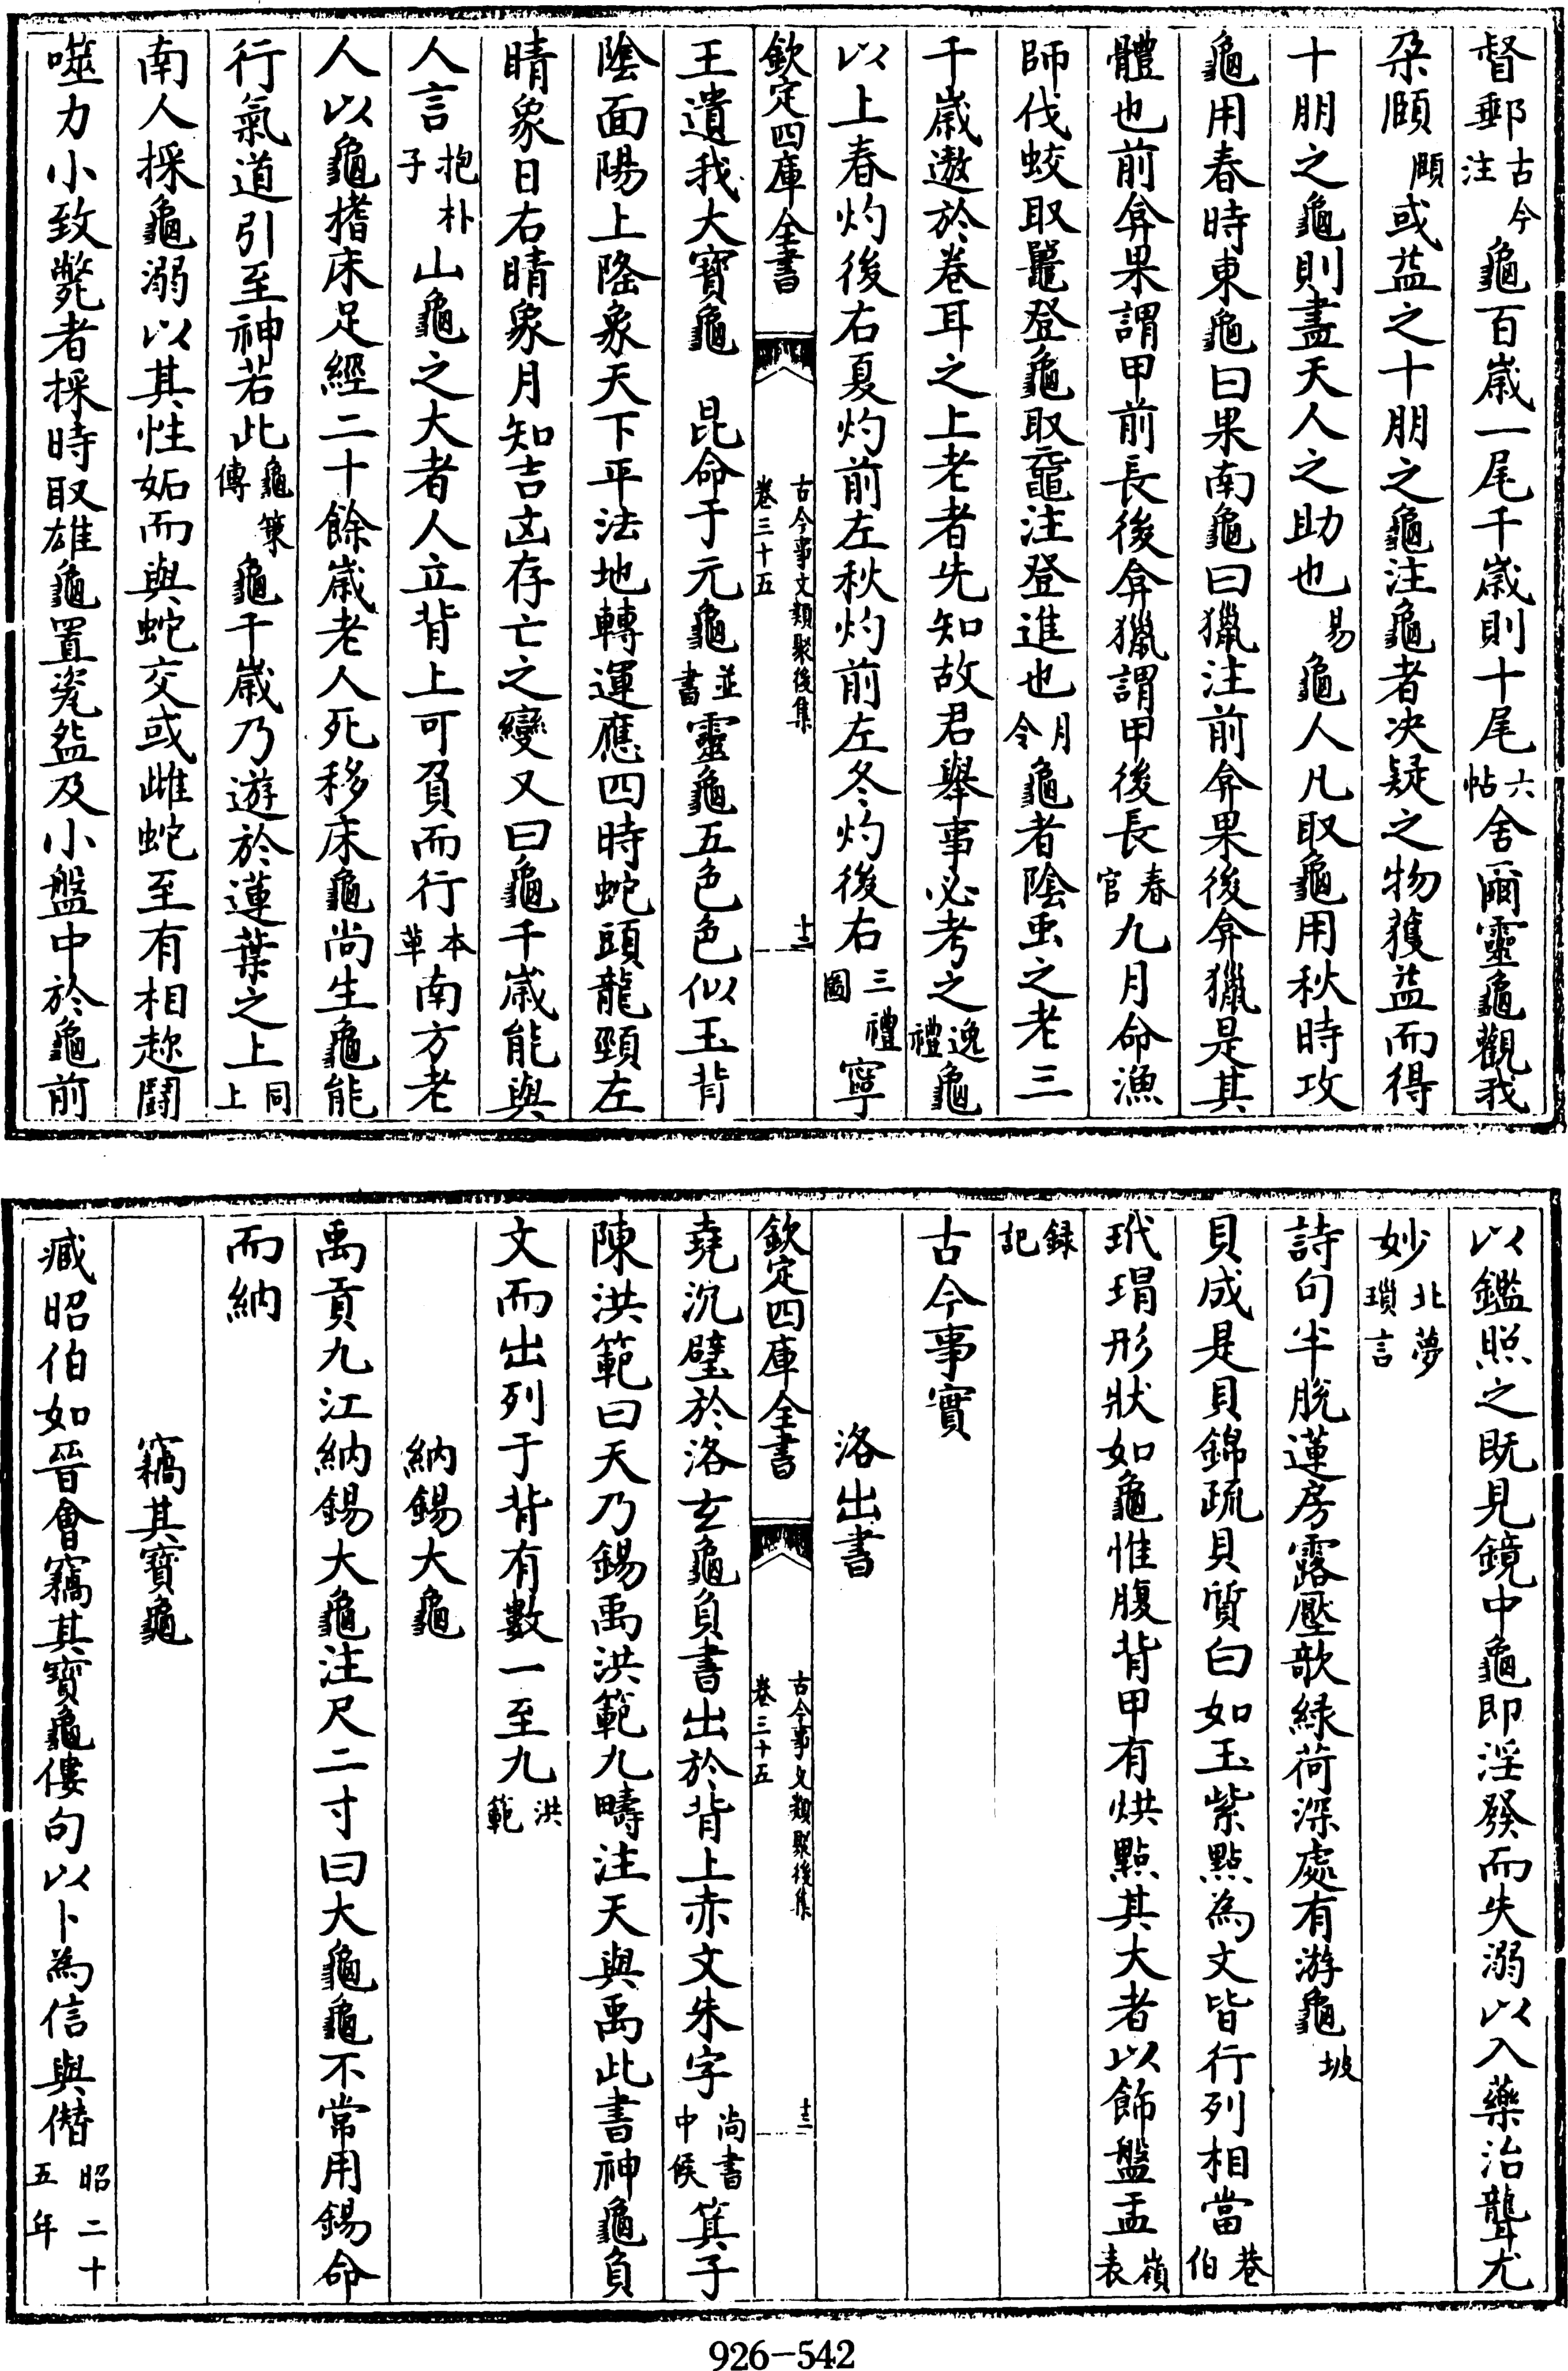 督郵古今注龜百歲一尾千歲則十尾六帖舍爾靈龜觀我
朶頤頤或益之十朋之龜注龜者决疑之物獲益而得
十朋之龜則盡天人之助也易龜人凡取龜用秋時攻
龜用春時東龜曰果南龜曰獵注前弇果後弇獵是其
體也前弇果謂甲前長後弇獵謂甲後長春官九月命漁
師伐蛟取鼉登龜取黿注登進也月令龜者陰虫之老三
千歲遨於卷耳之上老者先知故君舉事必考之逸禮龜
以上春灼後右夏灼前左秋灼前左冬灼後右三禮圖寧
欽定四庫全書 古今事文類聚後集 卷三十五 十三
王遺我大寶龜 昆命于元龜並書靈龜五色色似玉背
陰面陽上隆象天下平法地轉運應四時蛇頭龍頸左
睛象日右睛象月知吉凶存亡之變又曰龜千歲能與
人言抱朴子山龜之大者人立背上可負而行本草南方老
人以龜搘床足經二十餘歲老人死移床龜尚生龜能
行氣道引至神若此龜策傳龜千歲乃遊於蓮葉之上同上
南人採龜溺以其性妬而與蛇交或雌蛇至有相趂鬬
噬力小致斃者採時取雄龜置瓷盌及小盤中於龜前
以鑑照之既見鏡中龜即淫發而失溺以入藥治聾尤
妙北夢瑣言
詩句半脫蓮房露壓欹緑荷深處有游龜坡
貝成是貝錦疏貝質白如玉紫點為文皆行列相當巷伯
玳瑁形狀如龜惟腹背甲有烘點其大者以飾盤盂嶺表
録記
古今事實
洛出書
欽定四庫全書 古今事文類聚後集 卷三十五 十三
堯沉璧於洛玄龜負書出於背上赤文朱字尚書中候箕子
陳洪範曰天乃錫禹洪範九疇注天與禹此書神龜負
文而出列于背有數一至九洪範
納錫大龜
禹貢九江納錫大龜注尺二寸曰大龜龜不常用錫命
而納
竊其寶龜
臧昭伯如晉會竊其寶龜僂句以卜為信與僭昭二十五年
926-542